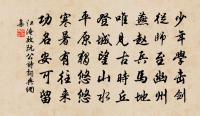 少年學擊劍
從師至幽州
燕趙兵馬地
唯見古時丘
登城望山水
平原獨悠悠
寒暑有往來
功名安可留
江淹效阮公詩詞典網
集